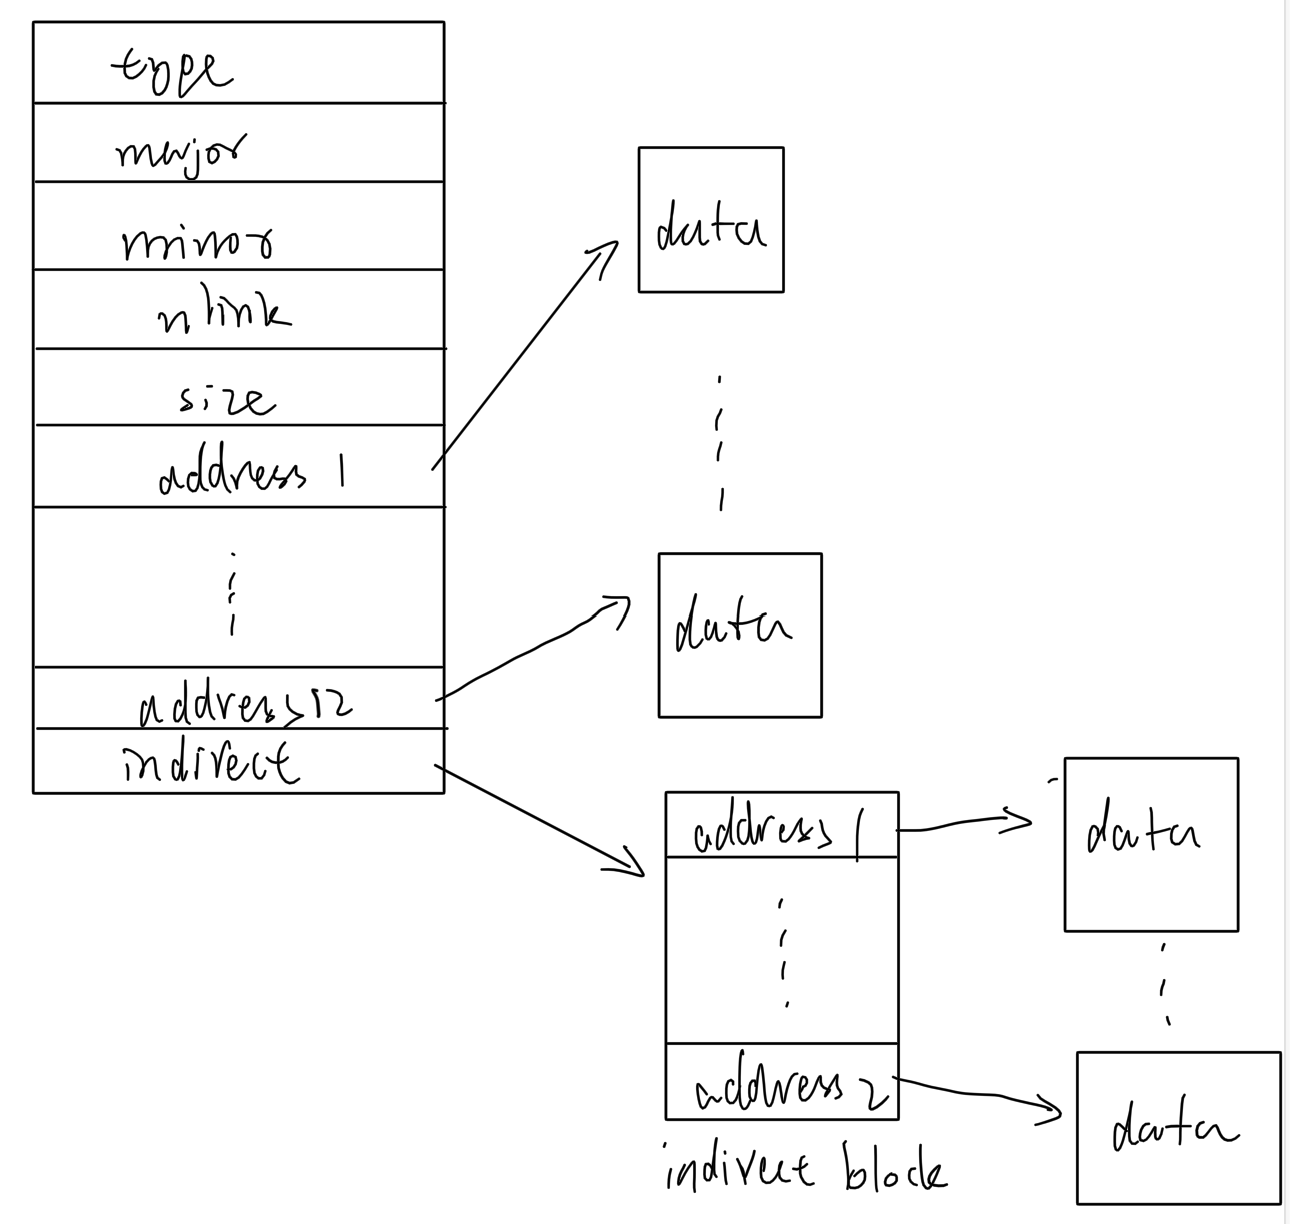 type
major
minor
nlink
size
address 1
address 12
indirect
data
data
address 1
address 2
indirect block
data
data